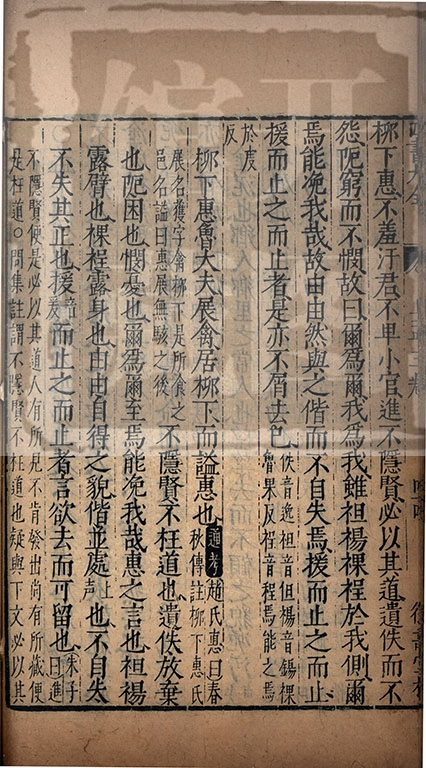 柳下惠不羞汙君不卑小官進不隱賢必以其道遺佚而不
怨阨窮而不憫故曰爾爲爾我爲我雖袒裼裸裎於我側爾
焉能浼我哉故由由然與之偕而不自失焉援而止之而止
援而止之而止者是亦不屑去已 佚音逸袒音但裼音錫裸
魯果反裎音程焉能之焉
於虔
反
柳下惠魯大夫展禽居柳下而謚惠也 通考 趙氏惠曰春
秋傳註柳下惠氏
展名獲字禽柳下是所食之
邑名謚曰惠展無駭之後 不隱賢不枉道也遺佚放棄
也阨困也憫憂也爾爲爾至焉能浼我哉惠之言也袒裼
露臂也裸裎露身也由由自得之貌偕並處 上聲 也不自失
不失其正也援 音爰 而止之而止者言欲去而可留也 朱子
曰進
不隱賢便是必以其道人有所見不肯發出尚有所藏便
是枉道○問集註謂不隱賢不枉道也疑與下文必以其